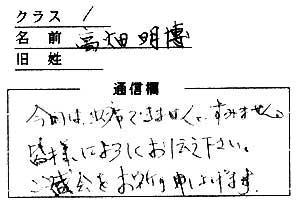 クラス 1
名前 高畑明博
旧姓
通信欄
今回は出席できませんで、すみません。
皆様によろしくお伝え下さい。
ご盛会をお祈り申し上げます。